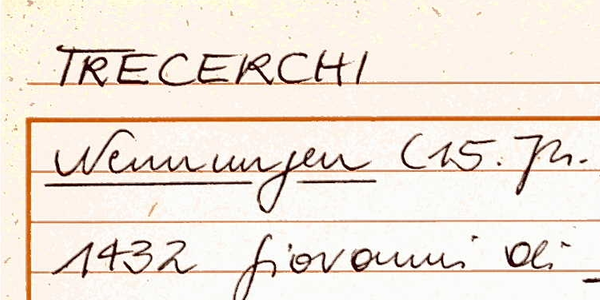 TRECERCHI
Nennungen (15. Jh.
1432 Giovanni di